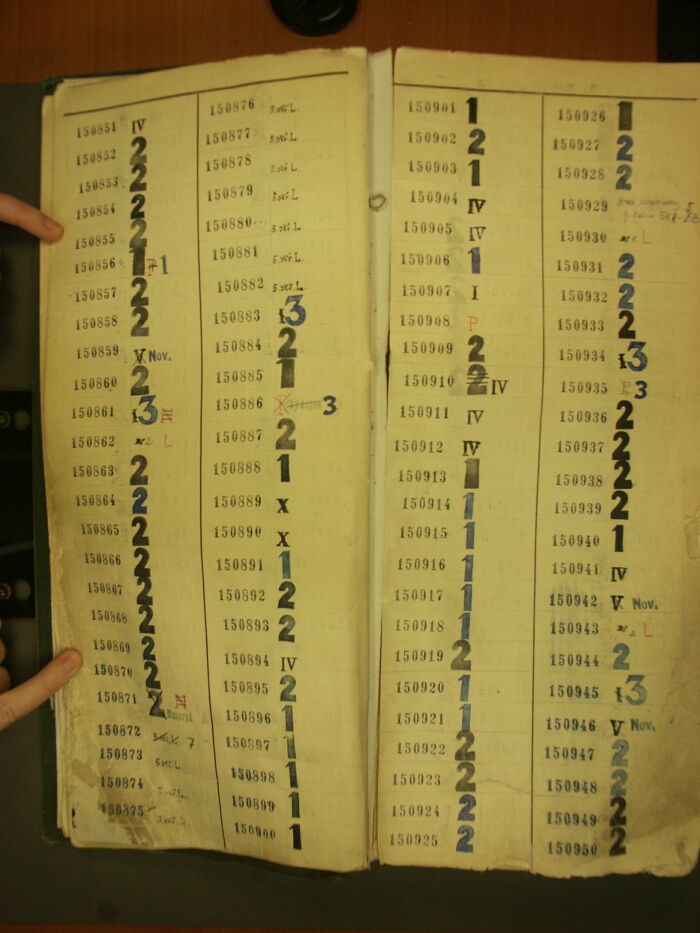 150851 IV
150852 2
150853 2
150854 2
150855 2
150856 1 P 1
150857 2
150858 2
150859 V Nov.
150860 2
150861 3
150862 L
150863 2
150864 2
150865 2
150866 2
150867 2
150868 2
150869 2
150870 2
150871 2
150872 7
150873
150874
150875
150876
150877
150878
150879
150880
150881
150882
150883 3
150884 2
150885 1
150886 3
150887 2
150888 1
150889 X
150890 X
150891 1
150892 2
150893 2
150894 IV
150895 2
150896 1
150897 1
150898 1
150899 1
150900 1
150901 1
150902 2
150903 1
150904 IV
150905 IV
150906 1
150907 I
150908 P
150909 2
150910 2 IV
150911 IV
150912 IV
150913 1
150914 1
150915 1
150916 1
150917 1
150918 1
150919 2
150920 1
150921 1
150922 2
150923 2
150924 2
150925 2
150926 1
150927 2
150928 2
150929
150930 L
150931 2
150932 2
150933 2
150934 3
150935 P 3
150936 2
150937 2
150938 2
150939 2
150940 1
150941 IV
150942 V Nov.
150943 L
150944 2
150945 3
150946 V Nov.
150947 2
150948 2
150949 2
150950 2